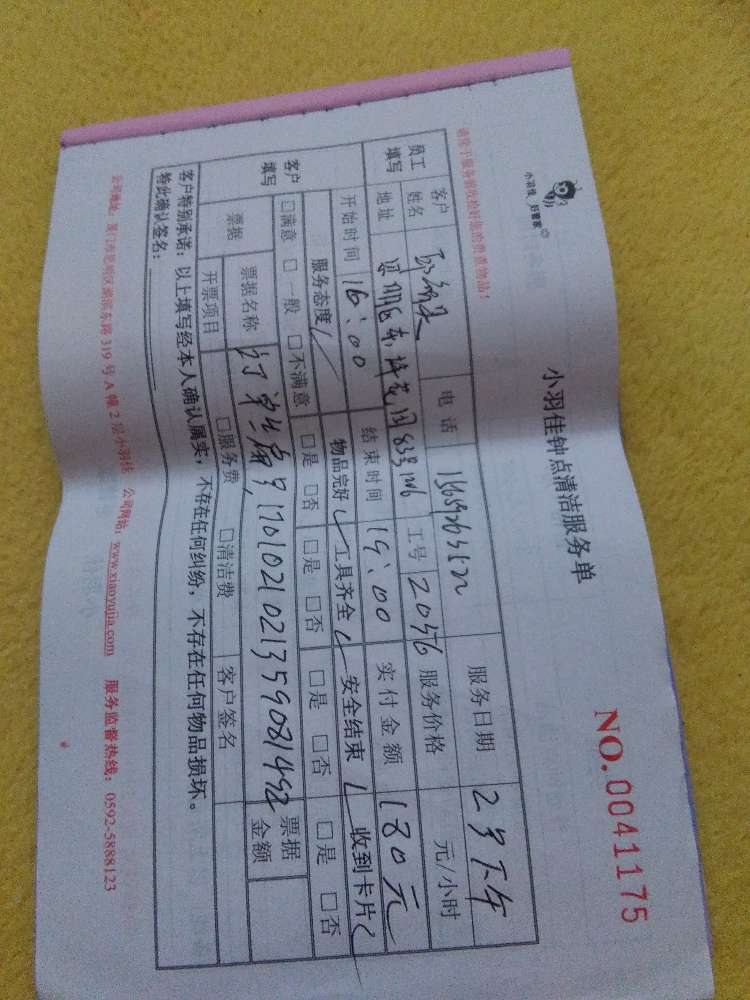 小羽佳 好管家
小羽佳钟点清洁服务单
NO.0041175
请您于服务前收捡好您的贵重物品!
员工填写 客户姓名 电话 服务日期 2号下午
地址 工号 20576 服务价格 元/小时
开始时间 16:00 结束时间 19:00 实付金额 180元
客户填写 服务态度 物品完好 工具齐全 安全结束 收到卡片
□满意 □一般 □不满意 □是 □否 □是 □否 □是 □否 □是 □否
票据 票据名称 订单编号,1701021021359081492 票据金额
开票项目 □服务费 □清洁费 客户签名
客户特别承诺:以上填写经本人确认属实,不存在任何纠纷,不存在任何物品损坏。
特此确认签名:
公司地址:厦门市思明区湖滨东路 319 号 A 幢 2 层小羽佳 公司网站:www.xiaoyujia.com 服务监督热线:0592-5888123